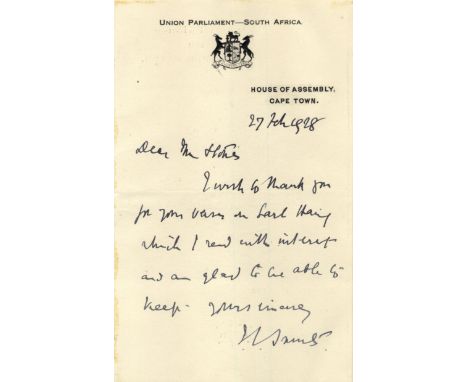 UNION PARLIAMENT—SOUTH AFRICA.
HOUSE OF ASSEMBLY,
CAPE TOWN.
27 Feb 1928
Dear Mr
I wish to thank you
for your verses on Earl Haig
which I read with interest
and am glad to be able to
keep. Yours sincerely
J. C. Smuts.